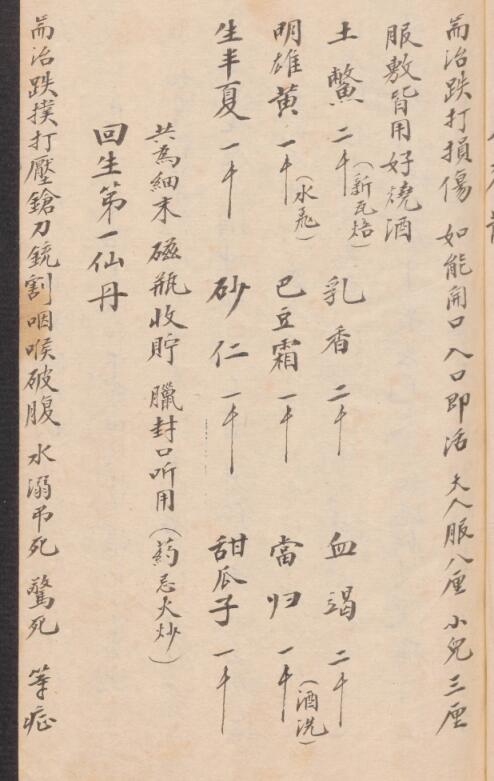 耑治跌打損傷 如能開口 入口即活 大人服八厘 小兒三厘
服敷皆用好燒酒
土鱉二千(新瓦焙) 乳香二千 血竭二千
明雄黃一千(水飛) 巴豆霜一千 當归一千(酒洗)
生半夏一千 砂仁一千 甜瓜子一千
共為細末 磁瓶收貯 臘封口听用(药忌火炒)
回生第一仙丹
耑治跌撲打壓鎗刀銃割咽喉破腹 水溺吊死 驚死 等症